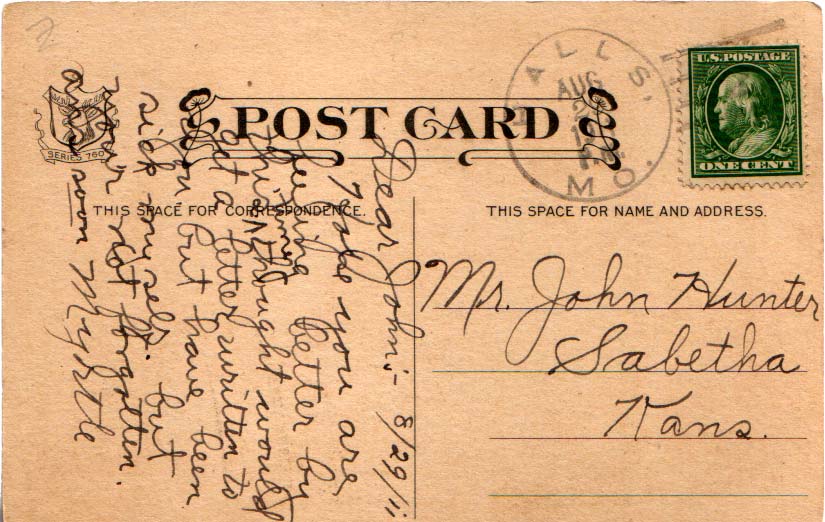 POST CARD
SERIES 760
HALLS,
AUG
MO.
U.S. POSTAGE
ONE CENT
THIS SPACE FOR CORRESPONDENCE.
THIS SPACE FOR NAME AND ADDRESS.
Dear John:- 8/29/11
Hope you are
feeling better by
thought would
get a letter written to
you but have been
sick myself. but
your not forgotten.
ans soon Myrtle
Mr. John Hunter
Sabetha
Kans.